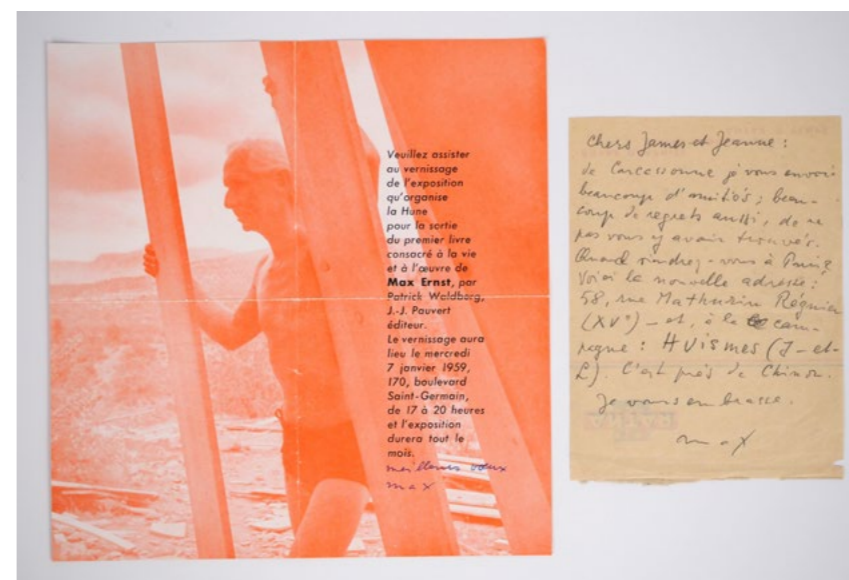 Veuillez assister
au vernissage
de l'exposition
qu'organise
la Hune
pour la sortie
du premier livre
consacré à la vie
et à l'œuvre de
Max Ernst, par
Patrick Waldberg,
J.-J. Pauvert
éditeur.
Le vernissage aura
lieu le mercredi
7 janvier 1959,
170, boulevard
Saint-Germain,
de 17 à 20 heures
et l'exposition
durera tout le
mois.
meilleurs vœux
max
Chers James et Jeanne :
de Carcassonne je vous envoie
beaucoup d'amitiés ; beau-
coup de regrets aussi, de ne
pas vous y avoir trouvés.
Quand viendrez-vous à Paris?
Voici la nouvelle adresse :
58, rue Mathurin Régnier
(XV°) – et, à la cam-
pagne : HUismes (I-et-
L). C'est près de Chinon.
Je vous embrasse.
max